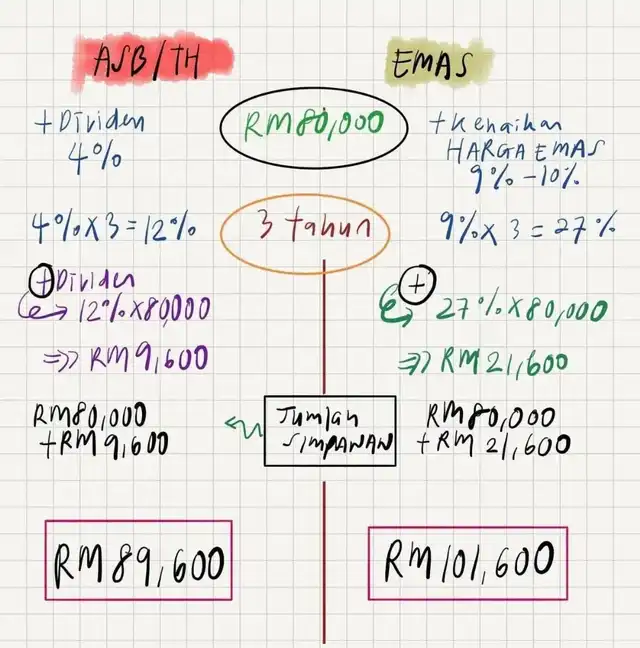 ASB/TH
EMAS
RM80,000
+Dividen
4%
+Kenaikan
HARGA EMAS
9% - 10%
3 tahun
4% X 3 = 12%
9% X 3 = 27%
+Dividen
12% X 80,000
=>> RM 9,600
+
27% X 80,000
=>> RM 21,600
RM80,000
+RM 9,600
Jumlah
SIMPANAN
RM80,000
+RM 21,600
RM 89,600
RM 101,600